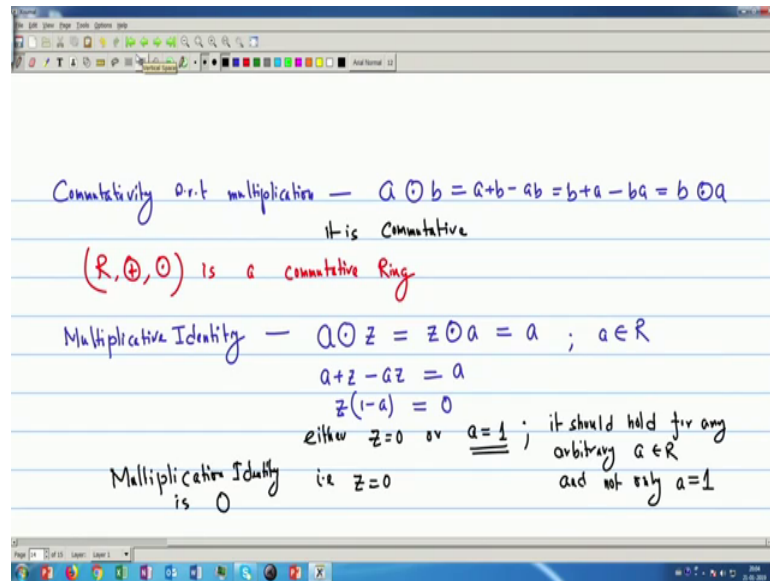 File Edit View Page Tools Options Help
Arial Normal 12
Vertical Space
Commutativity w.r.t multiplication — a ⊙ b = a+b-ab = b+a-ba = b ⊙ a
it is Commutative
(R, ⊕, ⊙) is a commutative Ring
Multiplicative Identity — a ⊙ z = z ⊙ a = a ; a ∈ R
a+z-az = a
z(1-a) = 0
either z=0 or a=1 ; it should hold for any
arbitrary a ∈ R
and not only a=1
Multiplication Identity i.e z=0
is 0
Page 14 of 15 Layer: Layer 1